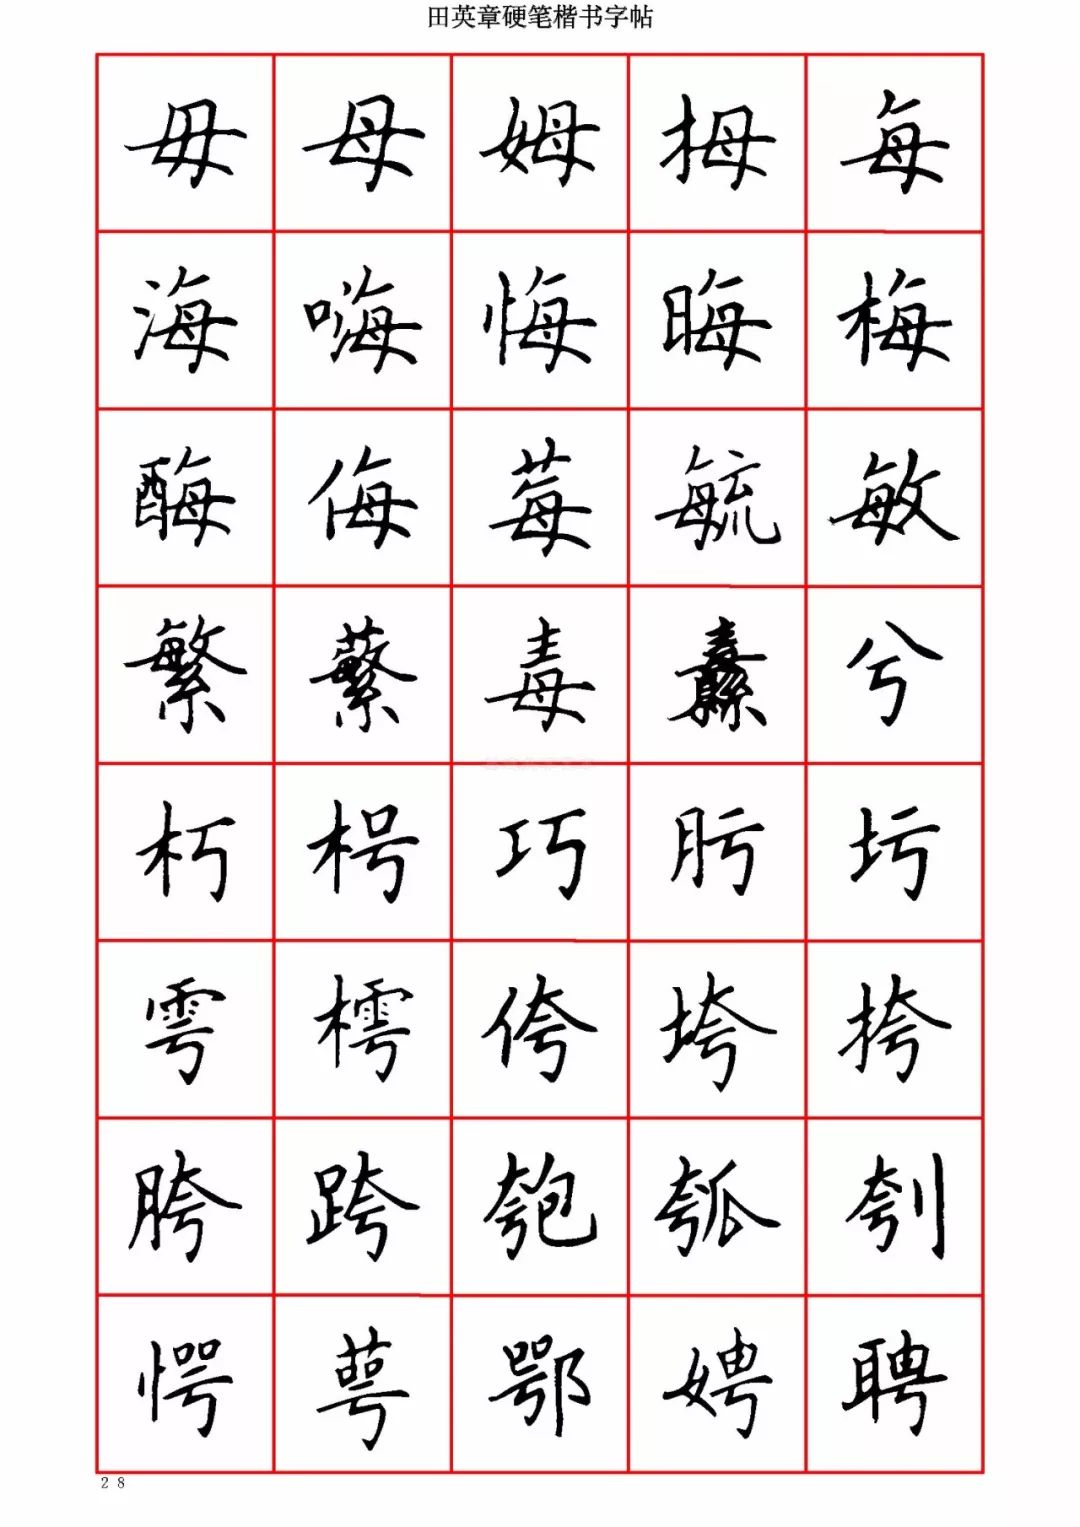 田英章硬笔楷书字帖
毋母姆拇每
海嗨悔晦梅
酶侮莓毓敏
繁蘩毒纛兮
朽枵巧肟圬
雩樗侉垮挎
胯跨匏瓠刳
愕萼鄂娉聘
28